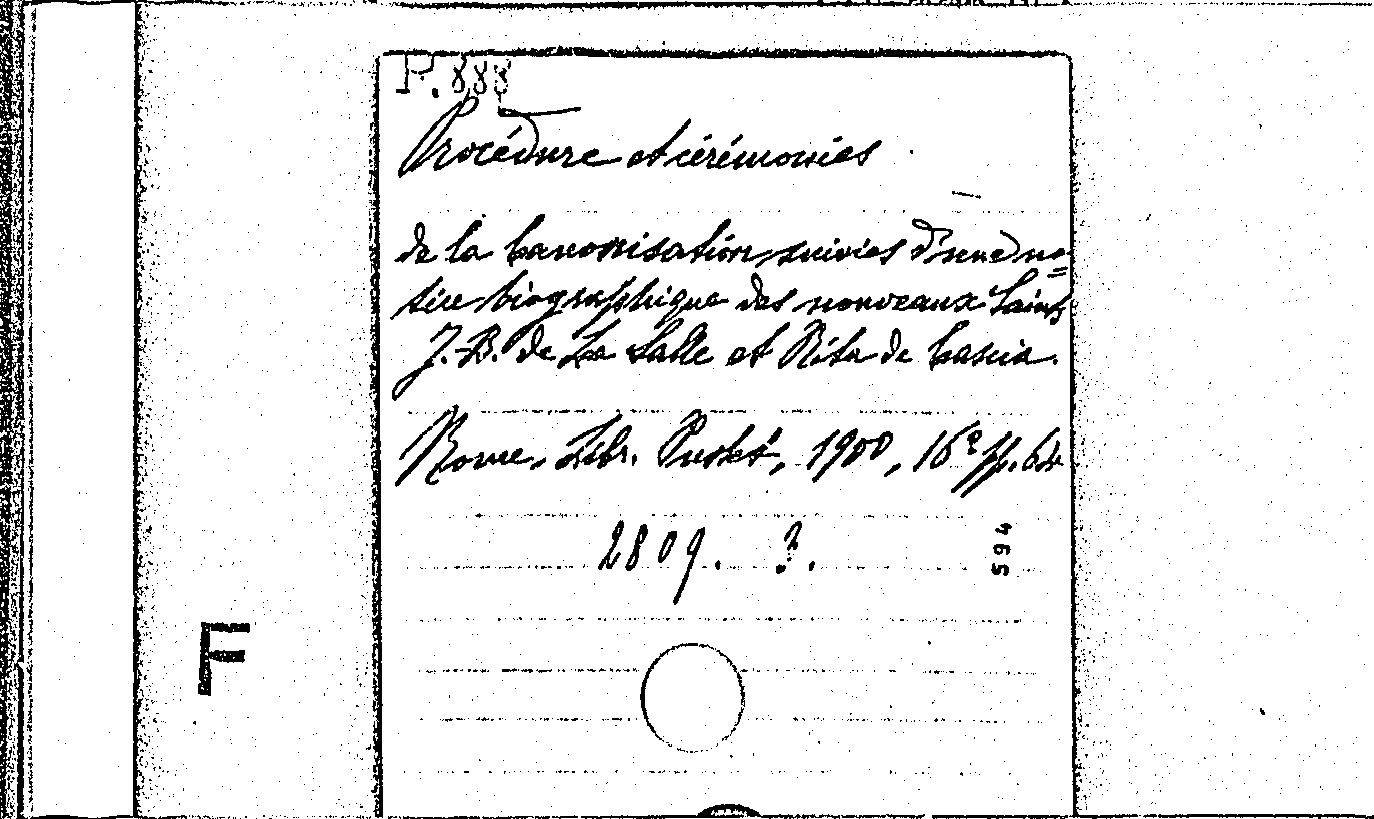 P. 888
Procédure et cérémonies
de la Canonisation suivies d'une no=
tice biographique des nouveaux Saints
J.-B. de La Salle et Rita de Cascia.
Rome, Libr. Pustet, 1900, 16º pp. 64
2809. 3.
594
F